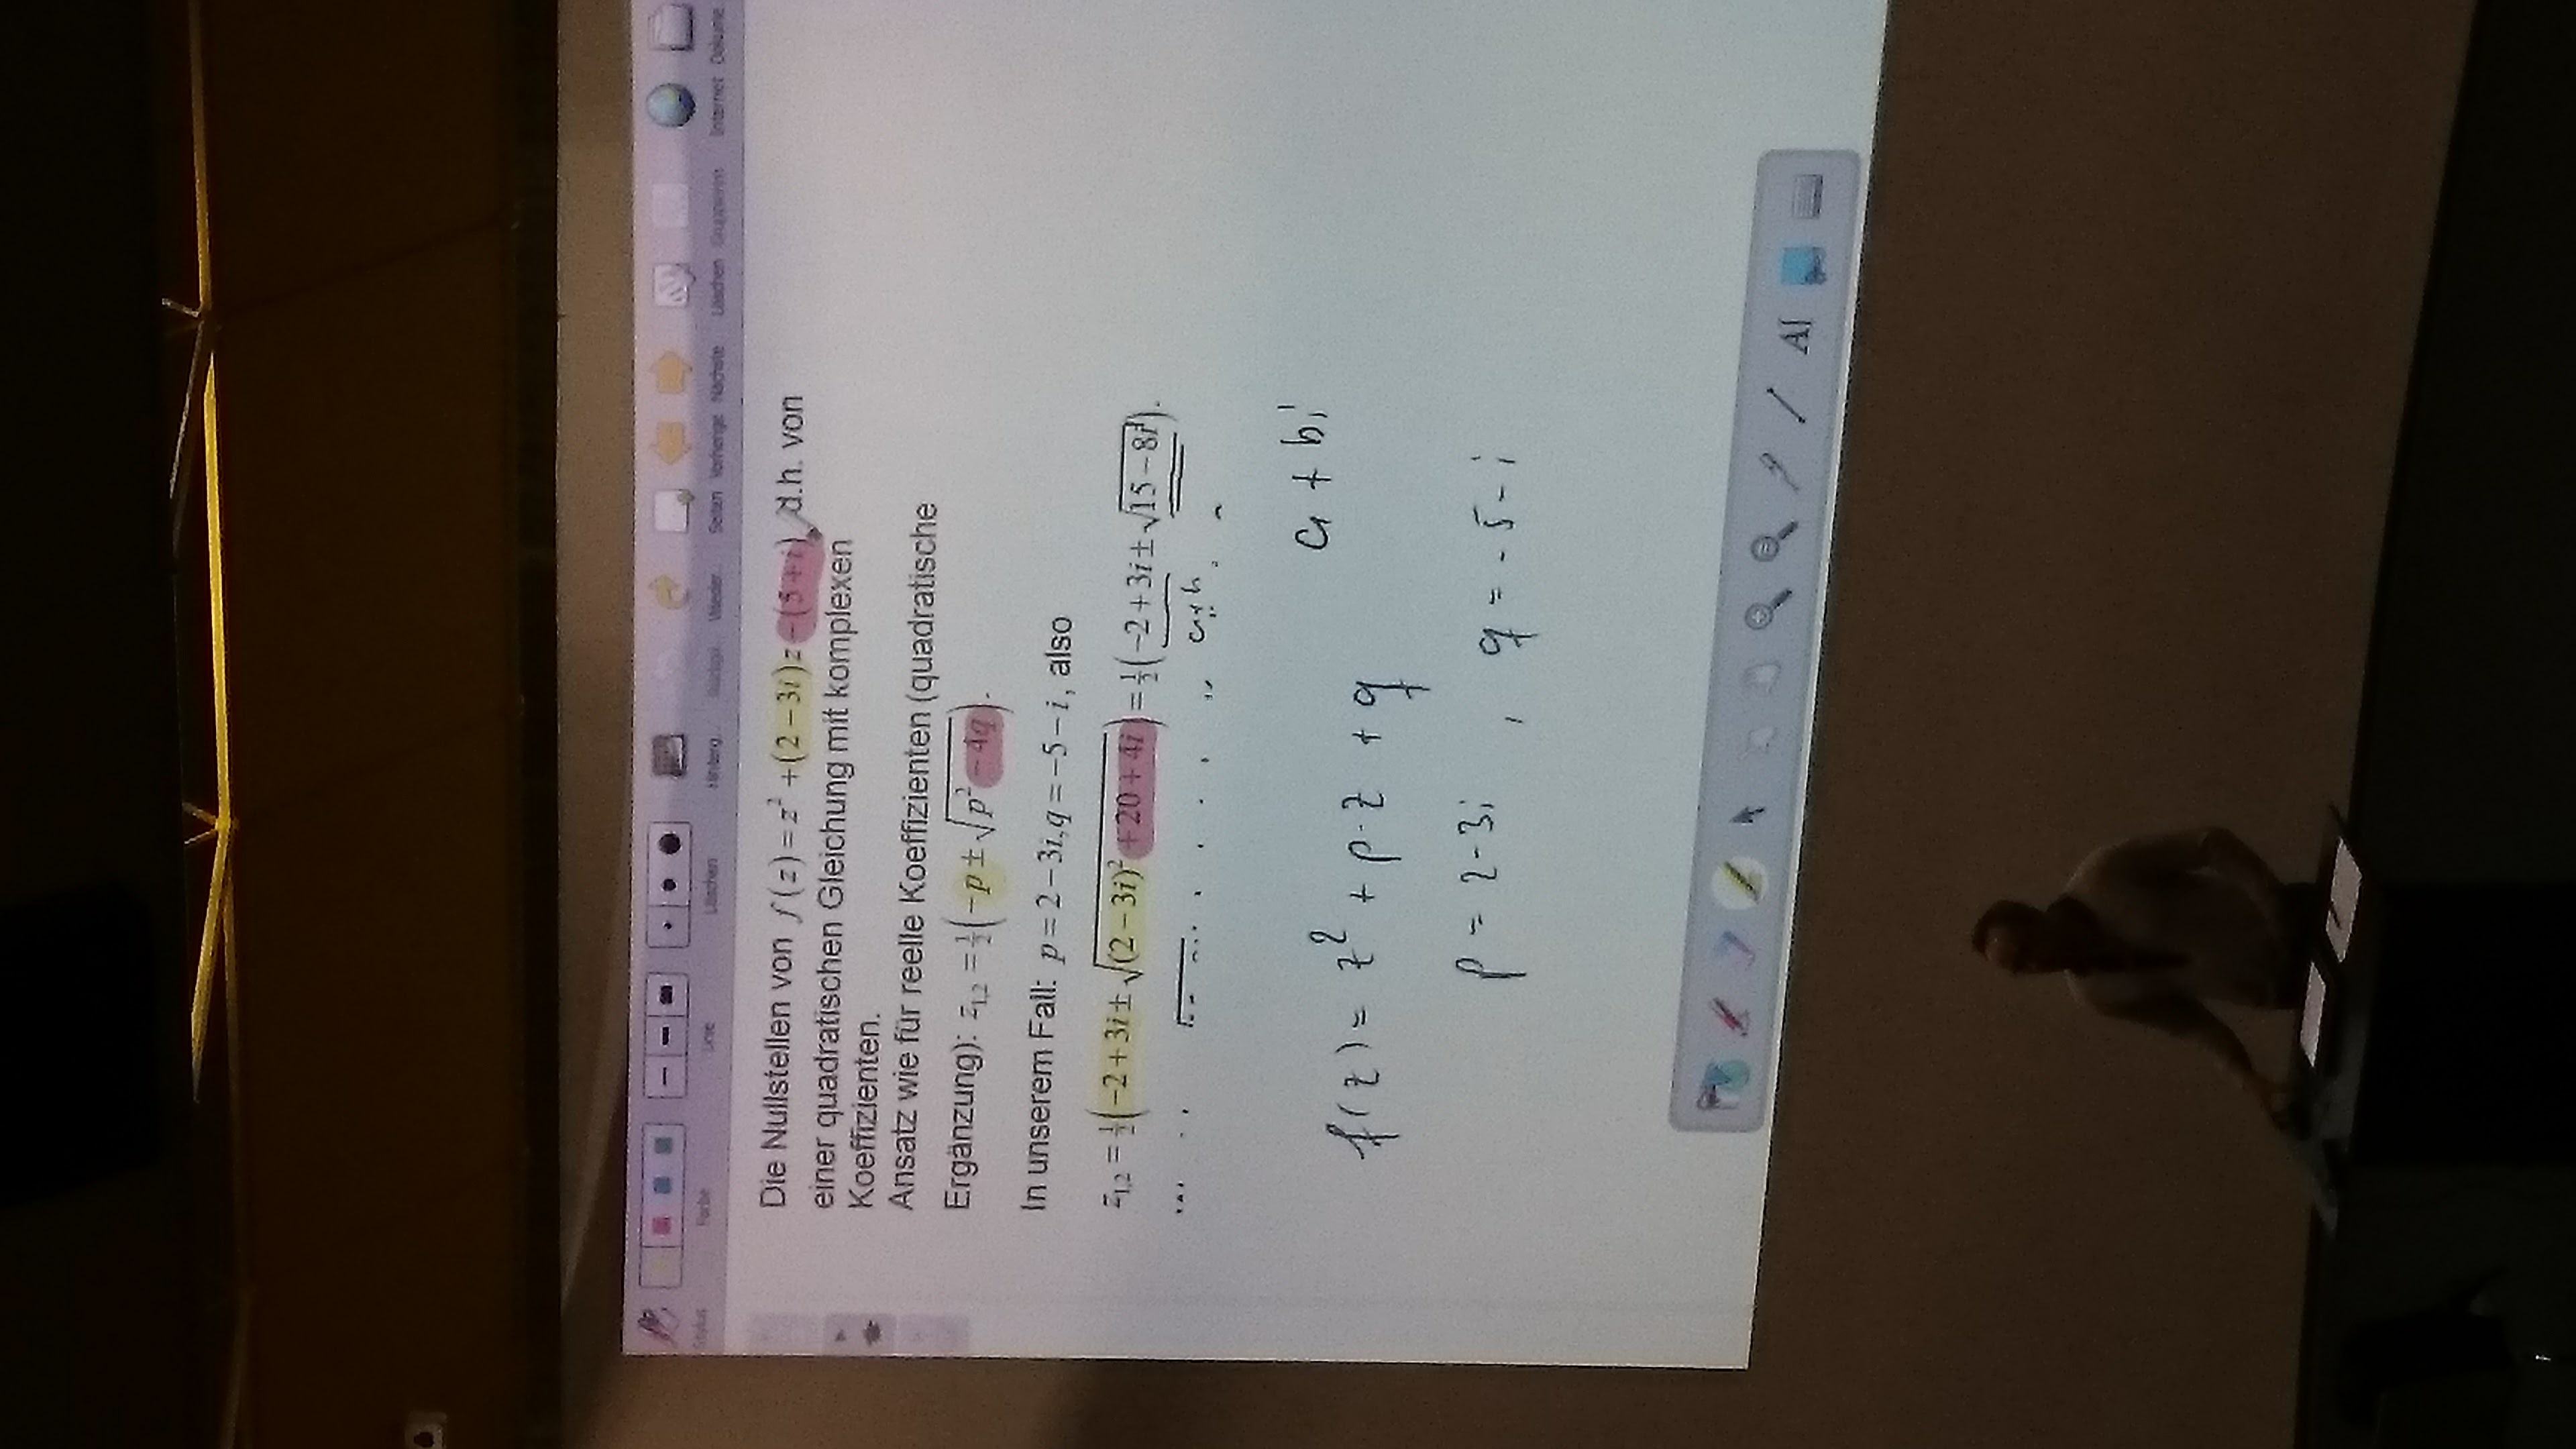 Stylus Farbe Linie Löschen Hinterg... Wieder... Seiten Vorherige Nächste Löschen Gruppieren Internet Dokume
Die Nullstellen von f(z) = z² + (2 − 3i)z −(5 + i), d.h. von
einer quadratischen Gleichung mit komplexen
Koeffizienten.
Ansatz wie für reelle Koeffizienten (quadratische
Ergänzung): z₁,₂ = ½(−p ± √(p² − 4q)).
In unserem Fall: p = 2 − 3i, q = −5 − i, also
z₁,₂ = ½(−2 + 3i ± √((2 − 3i)² + 20 + 4i)) = ½(−2 + 3i ± √(15 − 8i)).
a + bi
f(z) = z² + p·z + q
p = 2 - 3i , q = -5 - i
A